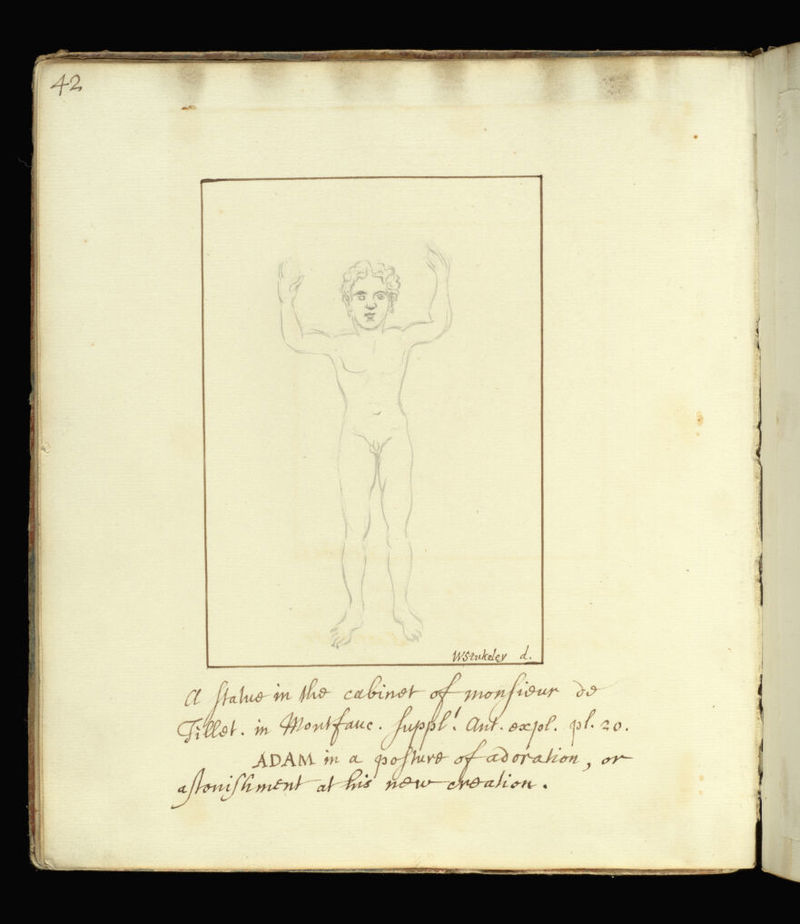 42
WStukeley d.
A statue in the cabinet of monsieur de
Tillet. in Montfauc. suppl! Ant. expl. pl. 20.
ADAM in a posture of adoration, or
astonishment at his new creation.